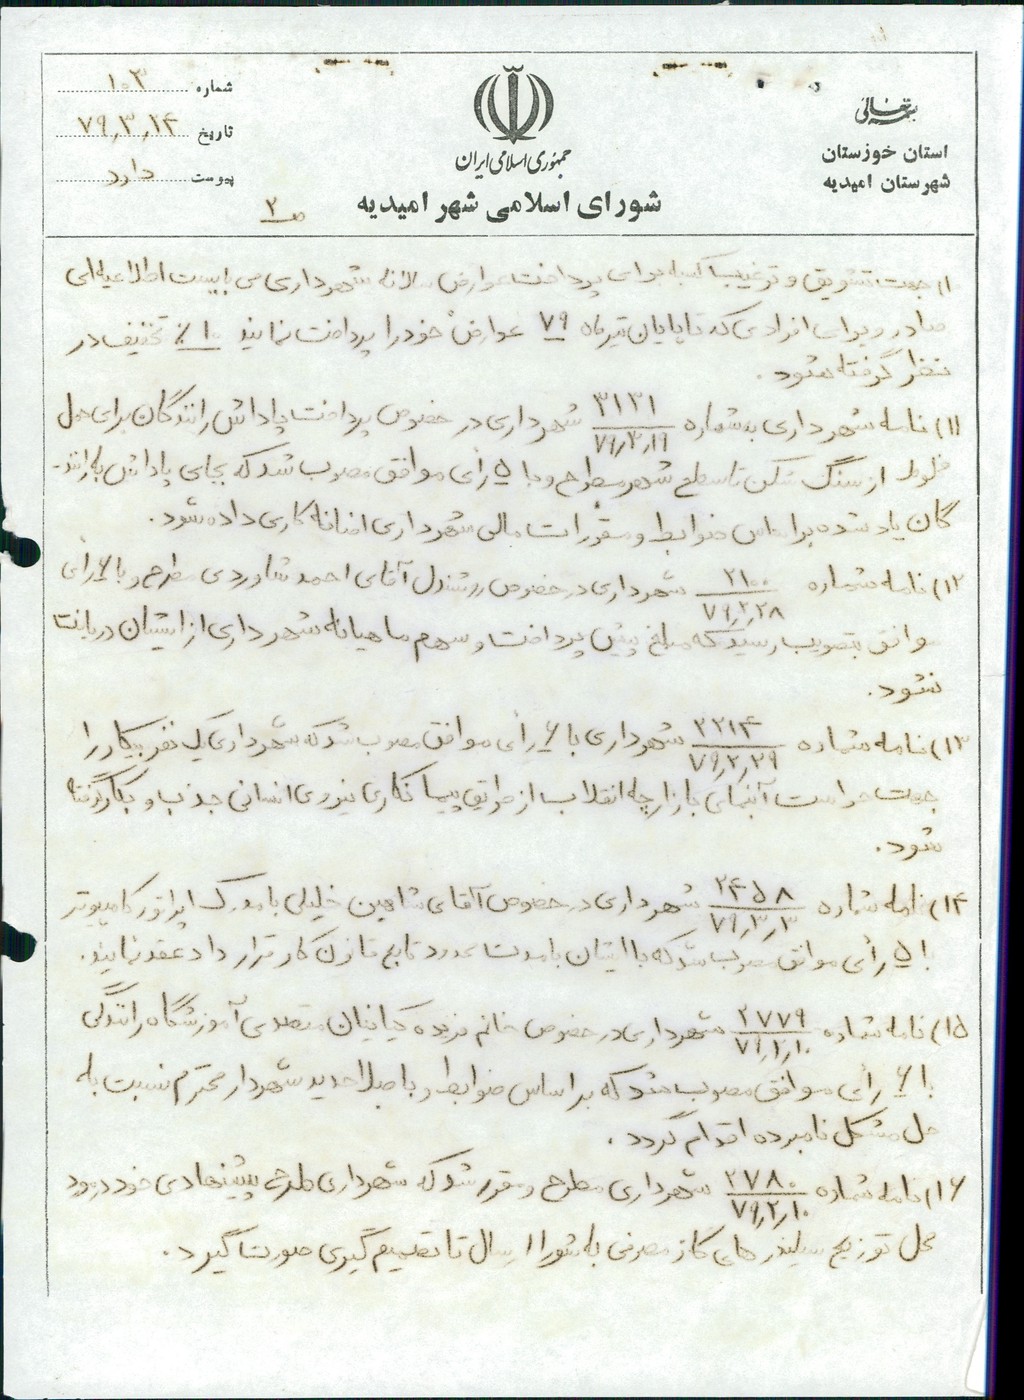 بسمه تعالی
استان خوزستان
شهرستان امیدیه
جمهوری اسلامی ایران
شورای اسلامی شهر امیدیه
شماره ۱۰۳
تاریخ ۷۹,۳,۱۴
پیوست دارد
ص ۲
جهت تشویق و ترغیب کسبه برای پرداخت عوارض سالانه شهرداری می بایست اطلاعیه‌ای
صادر و برای افرادی که تا پایان تیرماه ۷۹ عوارض خود را پرداخت نمایند ۱۰٪ تخفیف در
نظر گرفته شود .
۱۱) نامه شهرداری به شماره ۳۱۳۱ شهرداری در خصوص پرداخت پاداش رانندگان برای حمل
۷۹,۲,۱۹
مخلوط از سنگ شکن تا سطح شهر مطرح و با ۵ رأی موافق مصوب شد که بجای پاداش به رانند-
گان یاد شده بر اساس ضوابط و مقررات مالی شهرداری اضافه کاری داده شود .
۱۲) نامه شماره ۲۱۰۰ شهرداری در خصوص روشندل آقای احمد شاوردی مطرح و با ۶ رأی
۷۹,۲,۲۸
موافق بتصویب رسید که مبلغ پیش پرداخت و سهم ماهیانه شهرداری از ایشان دریافت
نشود .
۱۳) نامه شماره ۲۲۱۴ شهرداری با ۶ رأی موافق مصوب شد که شهرداری یک نفر بیکار را
۷۹,۲,۲۹
جهت حراست آبنمای بازارچه انقلاب از طریق پیمانکاری نیروی انسانی جذب و بکار گرفته
شود .
۱۴) نامه شماره ۲۴۵۸ شهرداری در خصوص آقای شاهین خلیلی با مدرک اپراتور کامپیوتر
۷۹,۳,۳
با ۵ رأی موافق مصوب شد که با ایشان با مدت محدود تابع قانون کار قرار داد عقد نمایند .
۱۵) نامه شماره ۲۷۷۹ شهرداری در خصوص خانم فریده کیانیان متصدی آموزشگاه رانندگی
با ۶ رأی موافق مصوب شد که بر اساس ضوابط و با صلاحدید شهردار محترم نسبت به
حل مشکل نامبرده اقدام گردد .
۱۶) نامه شماره ۲۷۸۰ شهرداری مطرح و مقرر شد که شهرداری طرح پیشنهادی خود در مورد
۷۹,۲,۱۰
محل توزیع سیلندر های گاز مصرفی به شورا ارسال تا تصمیم گیری صورت گیرد .